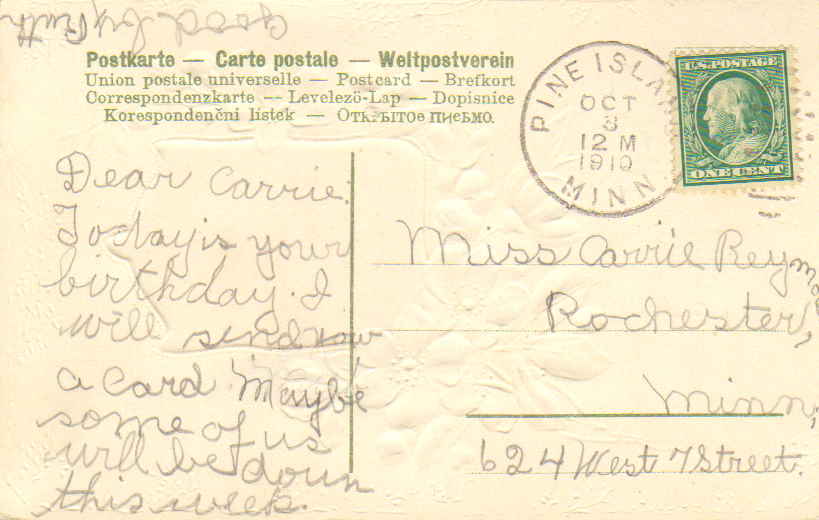 good by Ruth
Postkarte — Carte postale — Weltpostverein
Union postale universelle — Postcard — Brefkort
Correspondenzkarte — Levelezö-Lap — Dopisnice
Korespondenčni lístek — Открытое письмо.
PINE ISLA
OCT
3
12 M
1910
MINN
U.S. POSTAGE
ONE CENT
Dear Carrie:
Today is your
birthday. I
will send you
a card Maybe
some of us
will be down
this week.
Miss Carrie Reymo
Rochester,
Minn,
624 West 7 Street.